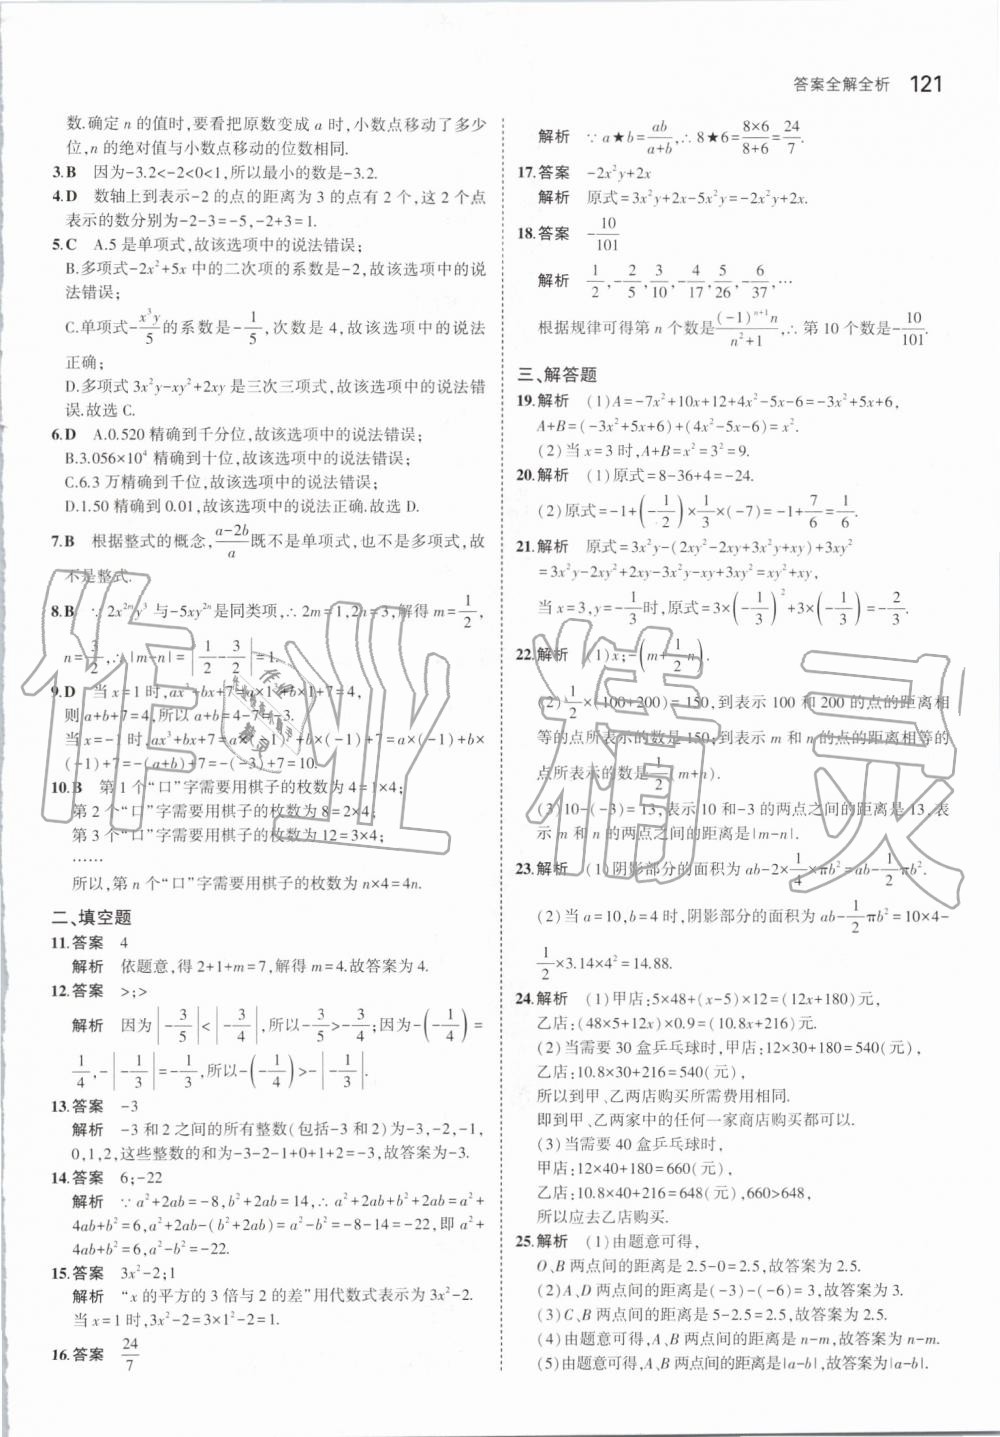 答案全解全析 121
数.确定 n 的值时,要看把原数变成 a 时,小数点移动了多少
位,n 的绝对值与小数点移动的位数相同.
3.B 因为-3.2<-2<0<1,所以最小的数是-3.2.
4.D 数轴上到表示-2 的点的距离为 3 的点有 2 个,这 2 个点
表示的数分别为-2-3=-5,-2+3=1.
5.C A.5 是单项式,故该选项中的说法错误;
B.多项式-2x²+5x 中的二次项的系数是-2,故该选项中的说
法错误;
C.单项式-x³y/5的系数是-1/5,次数是 4,故该选项中的说法
正确;
D.多项式 3x²y-xy²+2xy 是三次三项式,故该选项中的说法错
误.故选 C.
6.D A.0.520 精确到千分位,故该选项中的说法错误;
B.3.056×10⁴ 精确到十位,故该选项中的说法错误;
C.6.3 万精确到千位,故该选项中的说法错误;
D.1.50 精确到 0.01,故该选项中的说法正确.故选 D.
7.B 根据整式的概念,(a-2b)/a既不是单项式,也不是多项式,故
不是整式.
8.B ∵2x²ᵐy³ 与-5xy²ⁿ是同类项,∴2m=1,2n=3,解得 m=1/2,
n=3/2,∴|m-n|=|1/2-3/2|=1.
9.D 当 x=1 时,ax³+bx+7=a×1+b×1+7=4,
则 a+b+7=4,所以 a+b=4-7=-3.
当 x=-1 时,ax³+bx+7=a×(-1)³+b×(-1)+7=a×(-1)+b×
(-1)+7=-(a+b)+7=-(-3)+7=10.
10.B 第 1 个“口”字需要用棋子的枚数为 4=1×4;
第 2 个“口”字需要用棋子的枚数为 8=2×4;
第 3 个“口”字需要用棋子的枚数为 12=3×4;
……
所以,第 n 个“口”字需要用棋子的枚数为 n×4=4n.
二、填空题
11.答案 4
解析 依题意,得 2+1+m=7,解得 m=4.故答案为 4.
12.答案 >;>
解析 因为|-3/5|<|-3/4|,所以-3/5>-3/4;因为-(-1/4)=
1/4,-|-1/3|=-1/3,所以-(-1/4)>-|-1/3|.
13.答案 -3
解析 -3 和 2 之间的所有整数(包括-3 和 2)为-3,-2,-1,
0,1,2,这些整数的和为-3-2-1+0+1+2=-3.故答案为-3.
14.答案 6;-22
解析 ∵a²+2ab=-8,b²+2ab=14,∴a²+2ab+b²+2ab=a²+
4ab+b²=6,a²+2ab-(b²+2ab)=a²-b²=-8-14=-22,即 a²+
4ab+b²=6,a²-b²=-22.
15.答案 3x²-2;1
解析 “x 的平方的 3 倍与 2 的差”用代数式表示为 3x²-2.
当 x=1 时,3x²-2=3×1²-2=1.
16.答案 24/7
解析 ∵a★b=ab/(a+b),∴8★6=(8×6)/(8+6)=24/7.
17.答案 -2x²y+2x
解析 原式=3x²y+2x-5x²y=-2x²y+2x.
18.答案 -10/101
解析 1/2,-2/5,3/10,-4/17,5/26,-6/37,…
根据规律可得第 n 个数是(-1)ⁿ⁺¹n/(n²+1),∴第 10 个数是-10/101.
三、解答题
19.解析 (1)A=-7x²+10x+12+4x²-5x-6=-3x²+5x+6,
A+B=(-3x²+5x+6)+(4x²-5x-6)=x².
(2)当 x=3 时,A+B=x²=3²=9.
20.解析 (1)原式=8-36+4=-24.
(2)原式=-1+(-1/2)×1/3×(-7)=-1+7/6=1/6.
21.解析 原式=3x²y-(2xy²-2xy+3x²y+xy)+3xy²
=3x²y-2xy²+2xy-3x²y-xy+3xy²=xy²+xy,
当 x=3,y=-1/3时,原式=3×(-1/3)²+3×(-1/3)=-2/3.
22.解析 (1)x;-(m+1/2n).
(2)1/2×(100+200)=150,到表示 100 和 200 的点的距离相
等的点所表示的数是 150;到表示 m 和 n 的点的距离相等的
点所表示的数是1/2(m+n).
(3)10-(-3)=13,表示 10 和-3 的两点之间的距离是 13.表
示 m 和 n 的两点之间的距离是|m-n|.
23.解析 (1)阴影部分的面积为 ab-2×1/4×πb²=ab-1/2πb².
(2)当 a=10,b=4 时,阴影部分的面积为 ab-1/2πb²=10×4-
1/2×3.14×4²=14.88.
24.解析 (1)甲店:5×48+(x-5)×12=(12x+180)元,
乙店:(48×5+12x)×0.9=(10.8x+216)元.
(2)当需要 30 盒乒乓球时,甲店:12×30+180=540(元),
乙店:10.8×30+216=540(元),
所以到甲、乙两店购买所需费用相同.
即到甲、乙两家中的任何一家商店购买都可以.
(3)当需要 40 盒乒乓球时,
甲店:12×40+180=660(元),
乙店:10.8×40+216=648(元),660>648,
所以应去乙店购买.
25.解析 (1)由题意可得,
O、B 两点间的距离是 2.5-0=2.5,故答案为 2.5.
(2)A、D 两点间的距离是(-3)-(-6)=3,故答案为 3.
(3)C、B 两点间的距离为 5-2.5=2.5,故答案为 2.5.
(4)由题意可得,A、B 两点间的距离是 n-m,故答案为 n-m.
(5)由题意可得,A、B 两点间的距离是|a-b|,故答案为|a-b|.
作业精灵